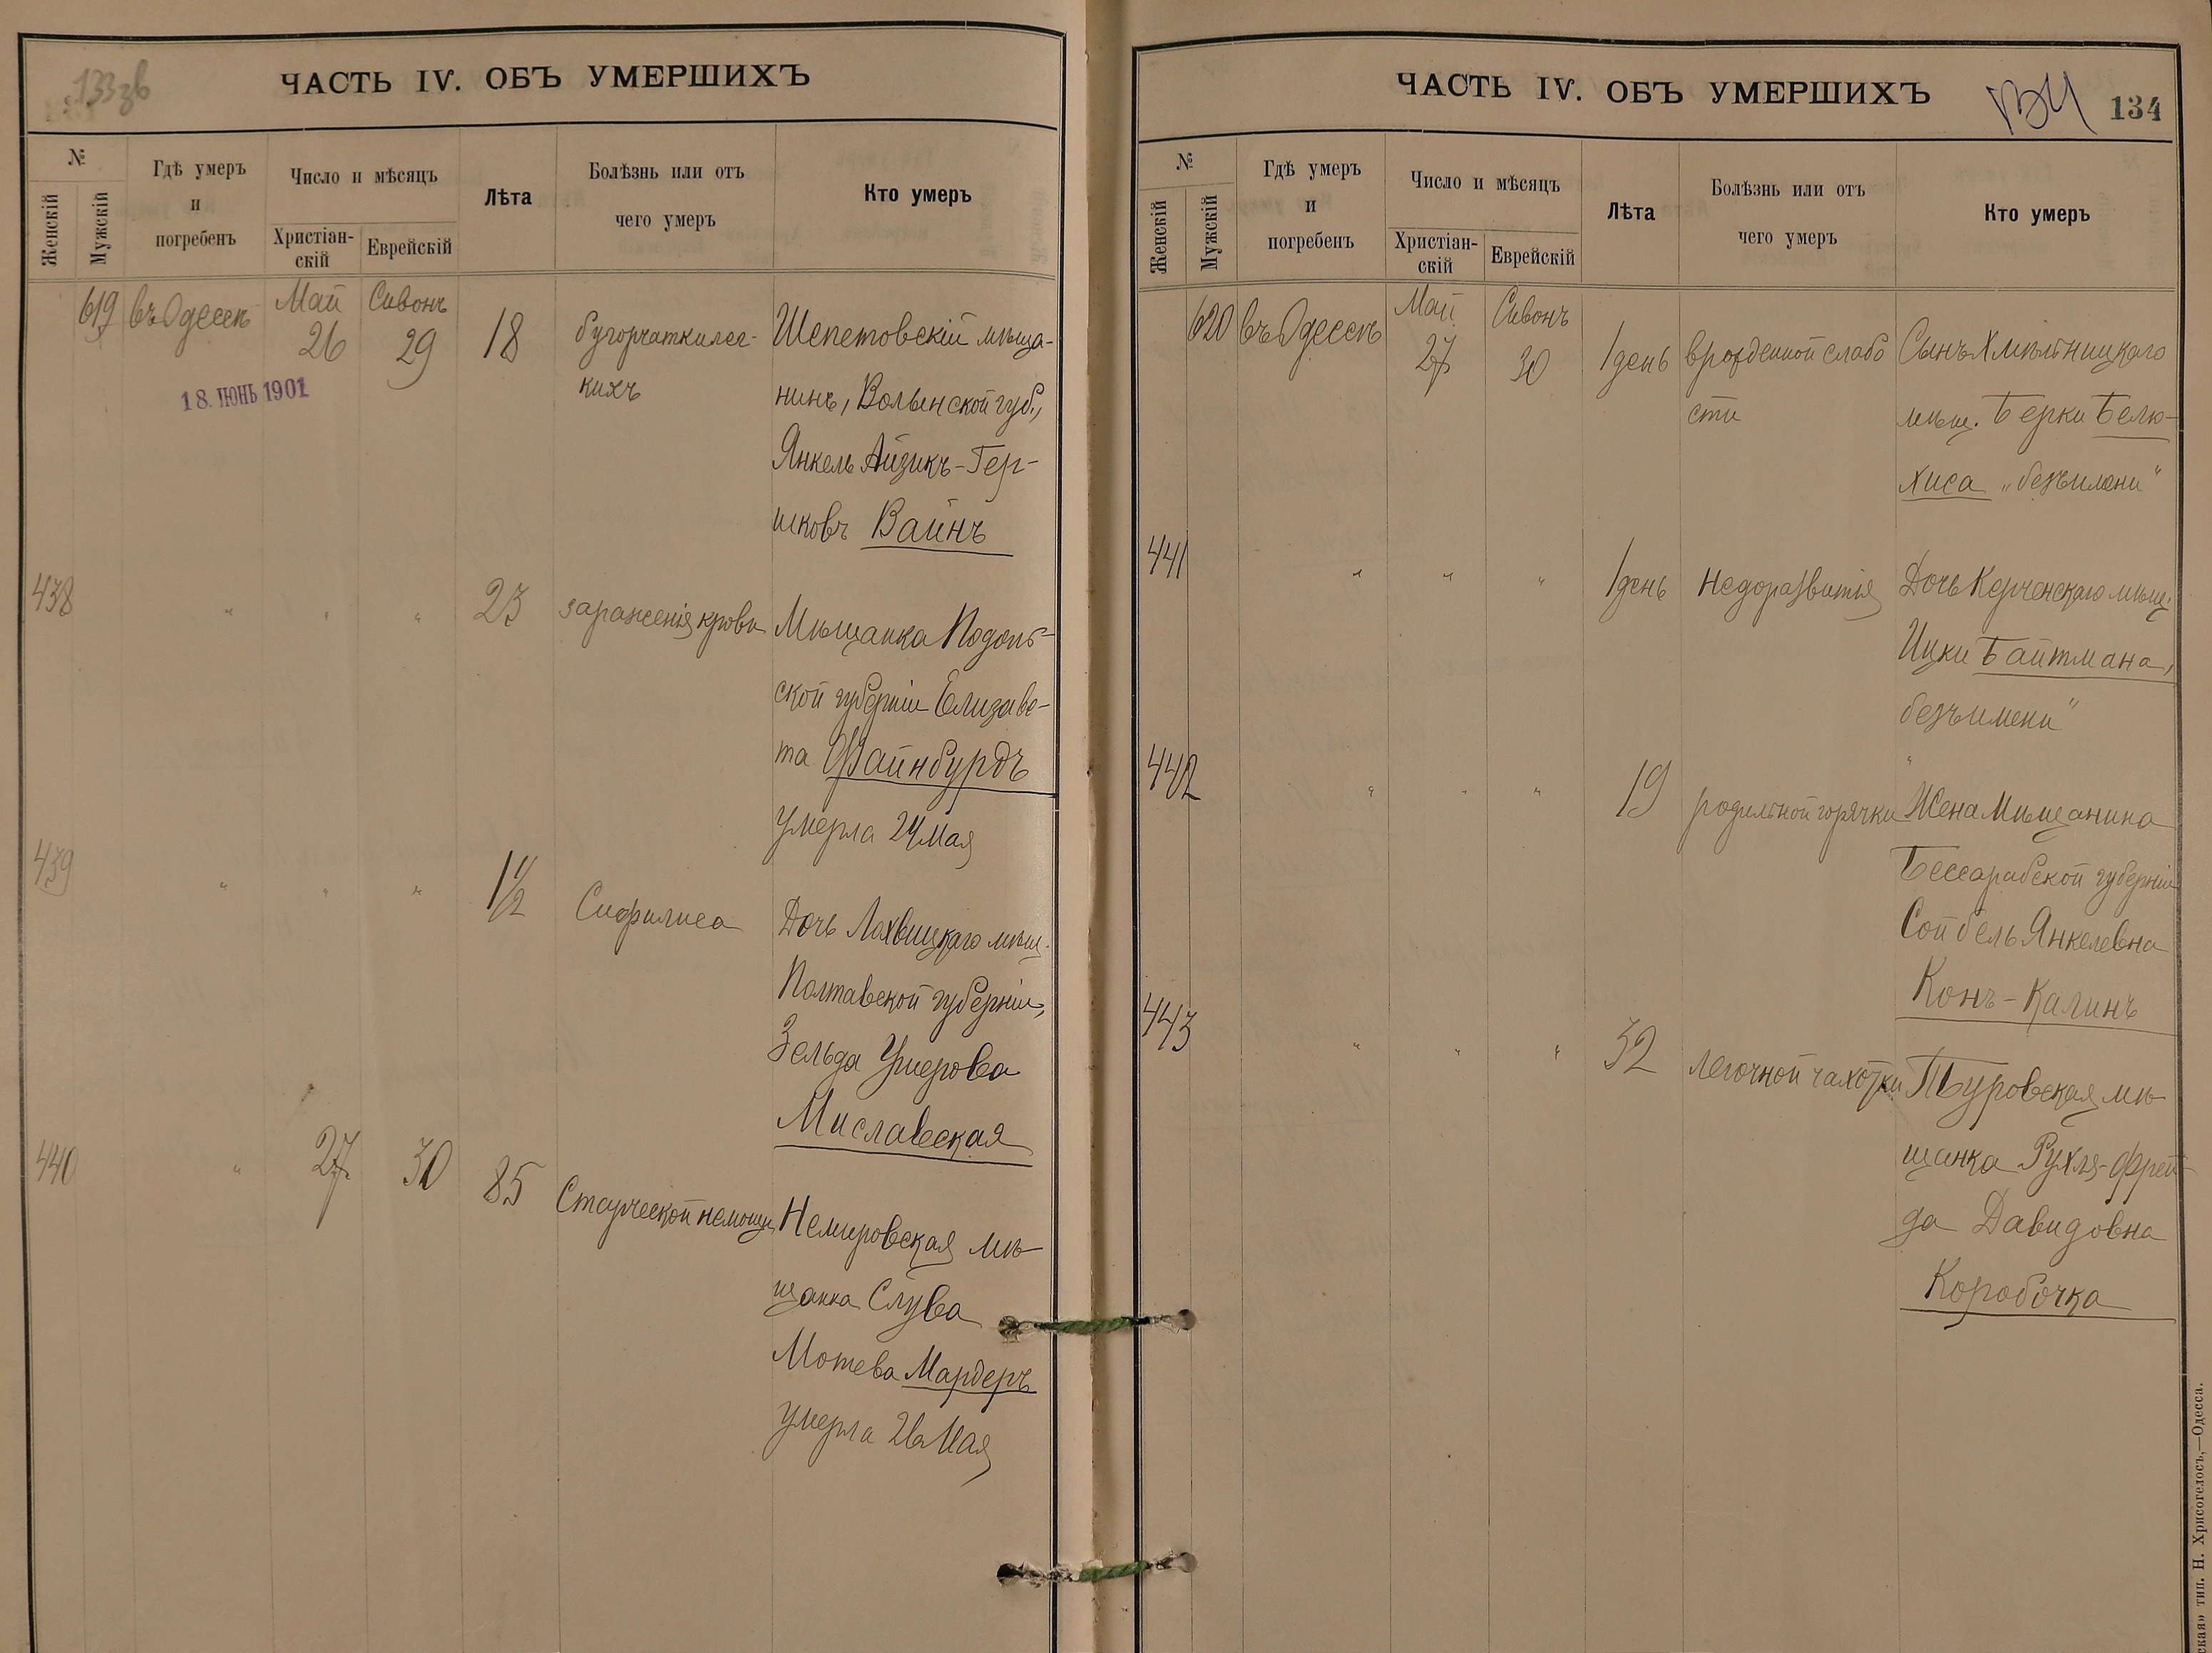 133зв
ЧАСТЬ IV. ОБЪ УМЕРШИХЪ
№
Женскій
Мужскій
Гдѣ умеръ
и
погребенъ
Число и мѣсяцъ
Христіан-
скій
Еврейскій
Лѣта
Болѣзнь или отъ
чего умеръ
Кто умеръ
619 въ Одессѣ Май 26 Сивонъ 29 18 бугорчатки лег- Шепетовскій мѣща-
кихъ нинъ, Волынской губ.,
18. ІЮНЬ 1901
Янкель Айзикъ-Гер-
шковъ Вайнъ
438 " " " 23 зараженія крови Мѣщанка Подоль-
ской губерніи Елизаве-
та Файнбурдъ
умерла 24 Мая
439 " " " 1 1/2 Сифилиса Дочь Лохвицкаго мѣщ.
Полтавской губерніи,
Зельда Ушерова
Миславская
440 " 27 30 85 Старческой немощи Немировская мѣ-
щанка Слува
Мотева Мардеръ
умерла 26 Мая
ЧАСТЬ IV. ОБЪ УМЕРШИХЪ
134
134
№
Женскій
Мужскій
Гдѣ умеръ
и
погребенъ
Число и мѣсяцъ
Христіан-
скій
Еврейскій
Лѣта
Болѣзнь или отъ
чего умеръ
Кто умеръ
620 въ Одессѣ Май 27 Сивонъ 30 1 день врожденной слабо Сынъ Хмѣльницкаго
сти мѣщ. Берки Белю-
хиса „безъ имени"
441 " " " 1 день недоразвитія Дочь Керченскаго мѣщ.
Ицки Байтмана,
безъ имени"
442 " " " 19 родильной горячки Жена Мѣщанина
Бессарабской губерніи
Сойбель Янкелевна
Конъ-Калинъ
443 " " " 32 легочной чахотки Туровская мѣ-
щанка Рухля-Фрей-
да Давидовна
Коробочка
ская» тип. Н. Хрисогелосъ,—Одесса.